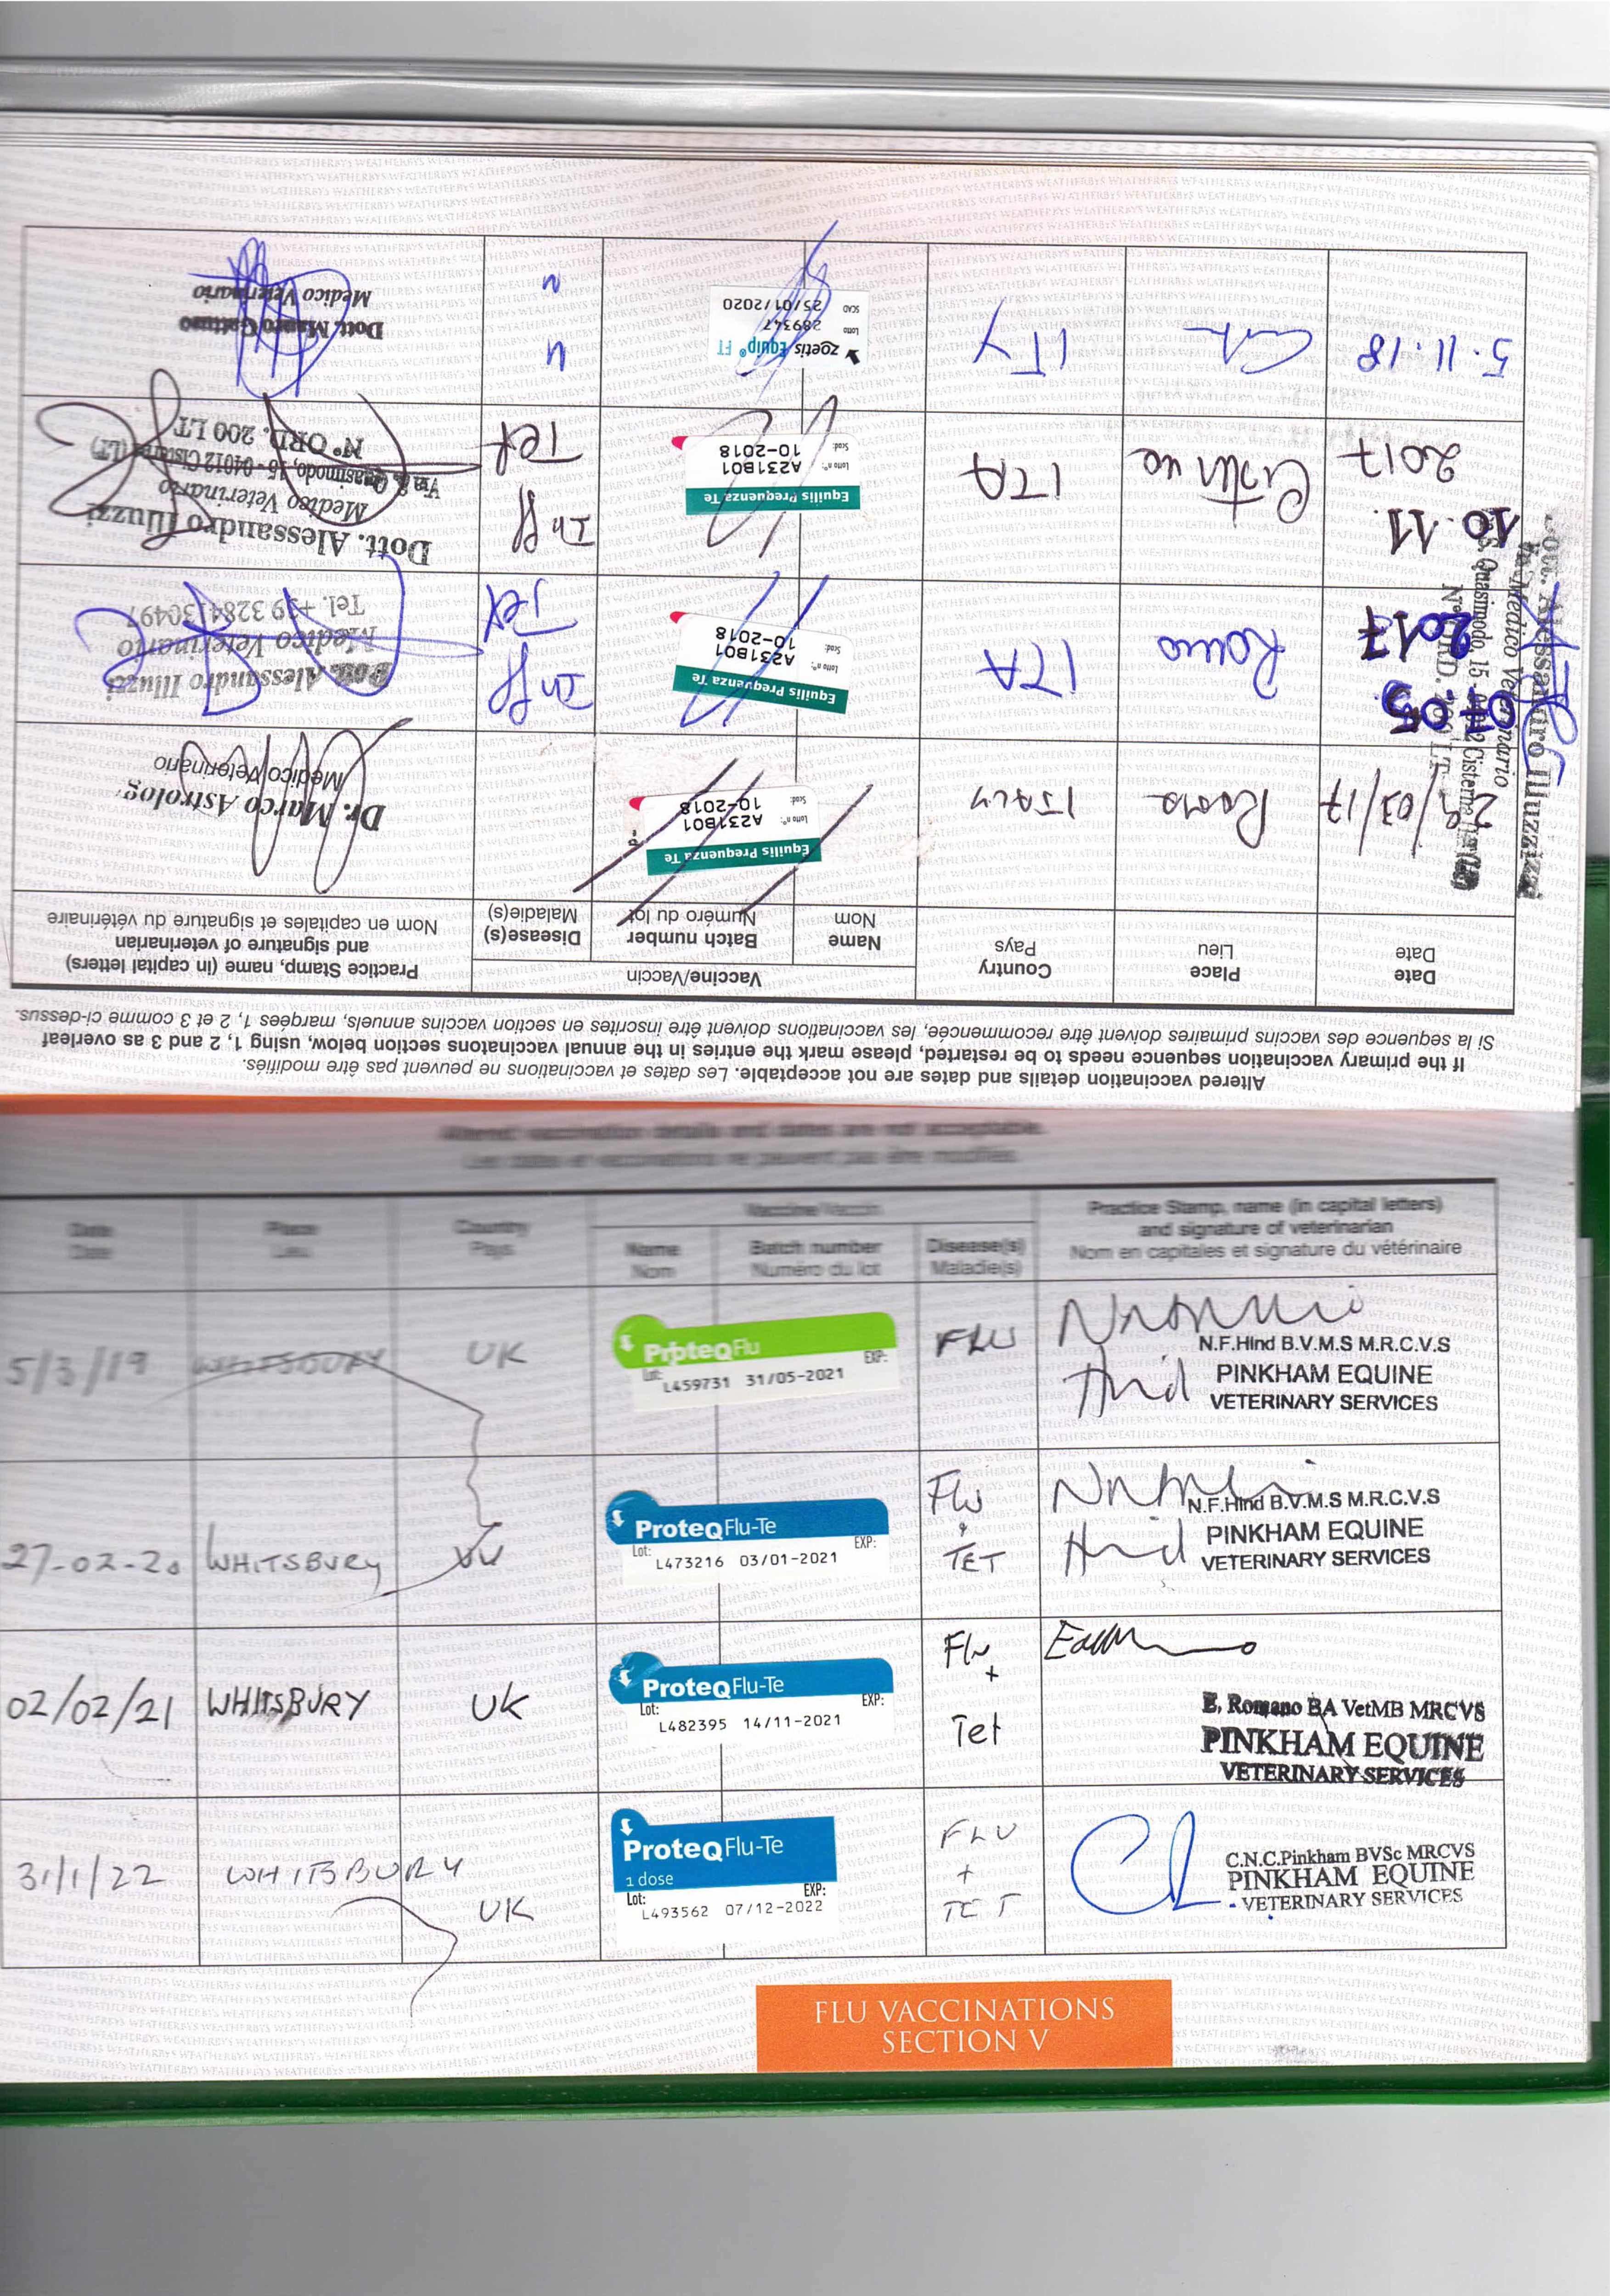 Altered vaccination details and dates are not acceptable. Les dates et vaccinations ne peuvent pas être modifiés.
If the primary vaccination sequence needs to be restarted, please mark the entries in the annual vaccinatons section below, using 1, 2 and 3 as overleaf
Si la sequence des vaccins primaires doivent être recommencée, les vaccinations doivent être inscrites en section vaccins annuels, marqées 1, 2 et 3 comme ci-dessus.
Date
Date
Place
Lieu
Country
Pays
Vaccine/Vaccin
Name
Nom
Batch number
Numéro du lot
Disease(s)
Maladie(s)
Practice Stamp, name (in capital letters)
and signature of veterinarian
Nom en capitales et signature du vétérinaire
/03/17
Roma
ITALY
Equilis Prequenza Te
Lotto n°:
A231B01
Scad:
10-2018
Dr. Marco Astrolog
Medico Veterinario
05
2017
Roma
ITA
Equilis Prequenza Te
Lotto n°:
A231B01
Scad:
10-2018
Inf
Tet
Dott. Alessandro Illuzzi
Medico Veterinario
10.11.
2017
Cisterna
ITA
Equilis Prequenza Te
Lotto n°:
A231B01
Scad:
10-2018
Inf
Tet
Dott. Alessandro Illuzzi
Medico Veterinario
Via S. Quasimodo, 15 - 04012 Cisterna (LT)
N° ORD. 200 LT
5.11.18
ITY
zoetis Equip® FT
Lotto
289347
SCAD
25/01/2020
"
"
Dott. Marco Gattuso
Medico Veterinario
Dott. Alessandro Illuzzi
Medico Veterinario
S. Quasimodo, 15
Altered vaccination details and dates are not acceptable.
Les dates et vaccinations ne peuvent pas être modifiés.
Date
Date
Place
Lieu
Country
Pays
Vaccine/Vaccin
Name
Nom
Batch number
Numéro du lot
Disease(s)
Maladie(s)
Practice Stamp, name (in capital letters)
and signature of veterinarian
Nom en capitales et signature du vétérinaire
5/3/19
WHITSBURY
UK
ProteqFlu
Lot:
EXP:
L459731 31/05-2021
FLU
N.F.Hind B.V.M.S M.R.C.V.S
PINKHAM EQUINE
VETERINARY SERVICES
27-02-20
WHITSBURY
UK
ProteqFlu-Te
Lot:
EXP:
L473216 03/01-2021
Flu
&
TET
N.F.Hind B.V.M.S M.R.C.V.S
PINKHAM EQUINE
VETERINARY SERVICES
02/02/21
WHITSBURY
UK
ProteqFlu-Te
Lot:
EXP:
L482395 14/11-2021
Flu
+
Tet
E. Romano BA VetMB MRCVS
PINKHAM EQUINE
VETERINARY SERVICES
31/1/22
WHITSBURY
UK
ProteqFlu-Te
1 dose
Lot:
EXP:
L493562 07/12-2022
FLU
+
TET
C.N.C.Pinkham BVSc MRCVS
PINKHAM EQUINE
VETERINARY SERVICES
FLU VACCINATIONS
SECTION V